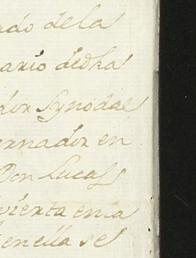 ado de la
ario dedha
dor synodal
ernador en
Don Lucas
vienta en la
en ella se